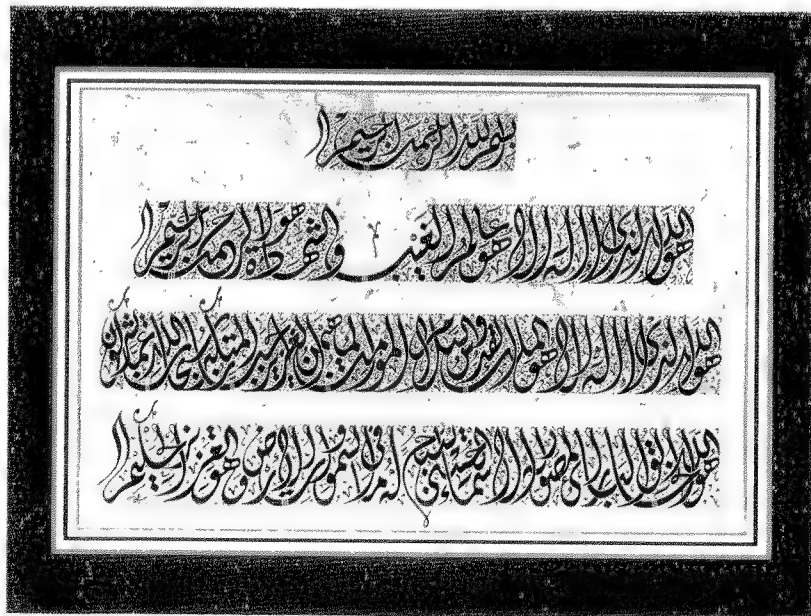 بسم الله الرحمن الرحيم
هو الله الذي لا اله الا هو عالم الغيب والشهادة هو الرحمن الرحيم
هو الله الذي لا اله الا هو الملك القدوس السلام المؤمن المهيمن العزيز الجبار المتكبر سبحان الله عما يشركون
هو الله الخالق البارئ المصور له الاسماء الحسنى يسبح له ما في السموات والارض وهو العزيز الحكيم